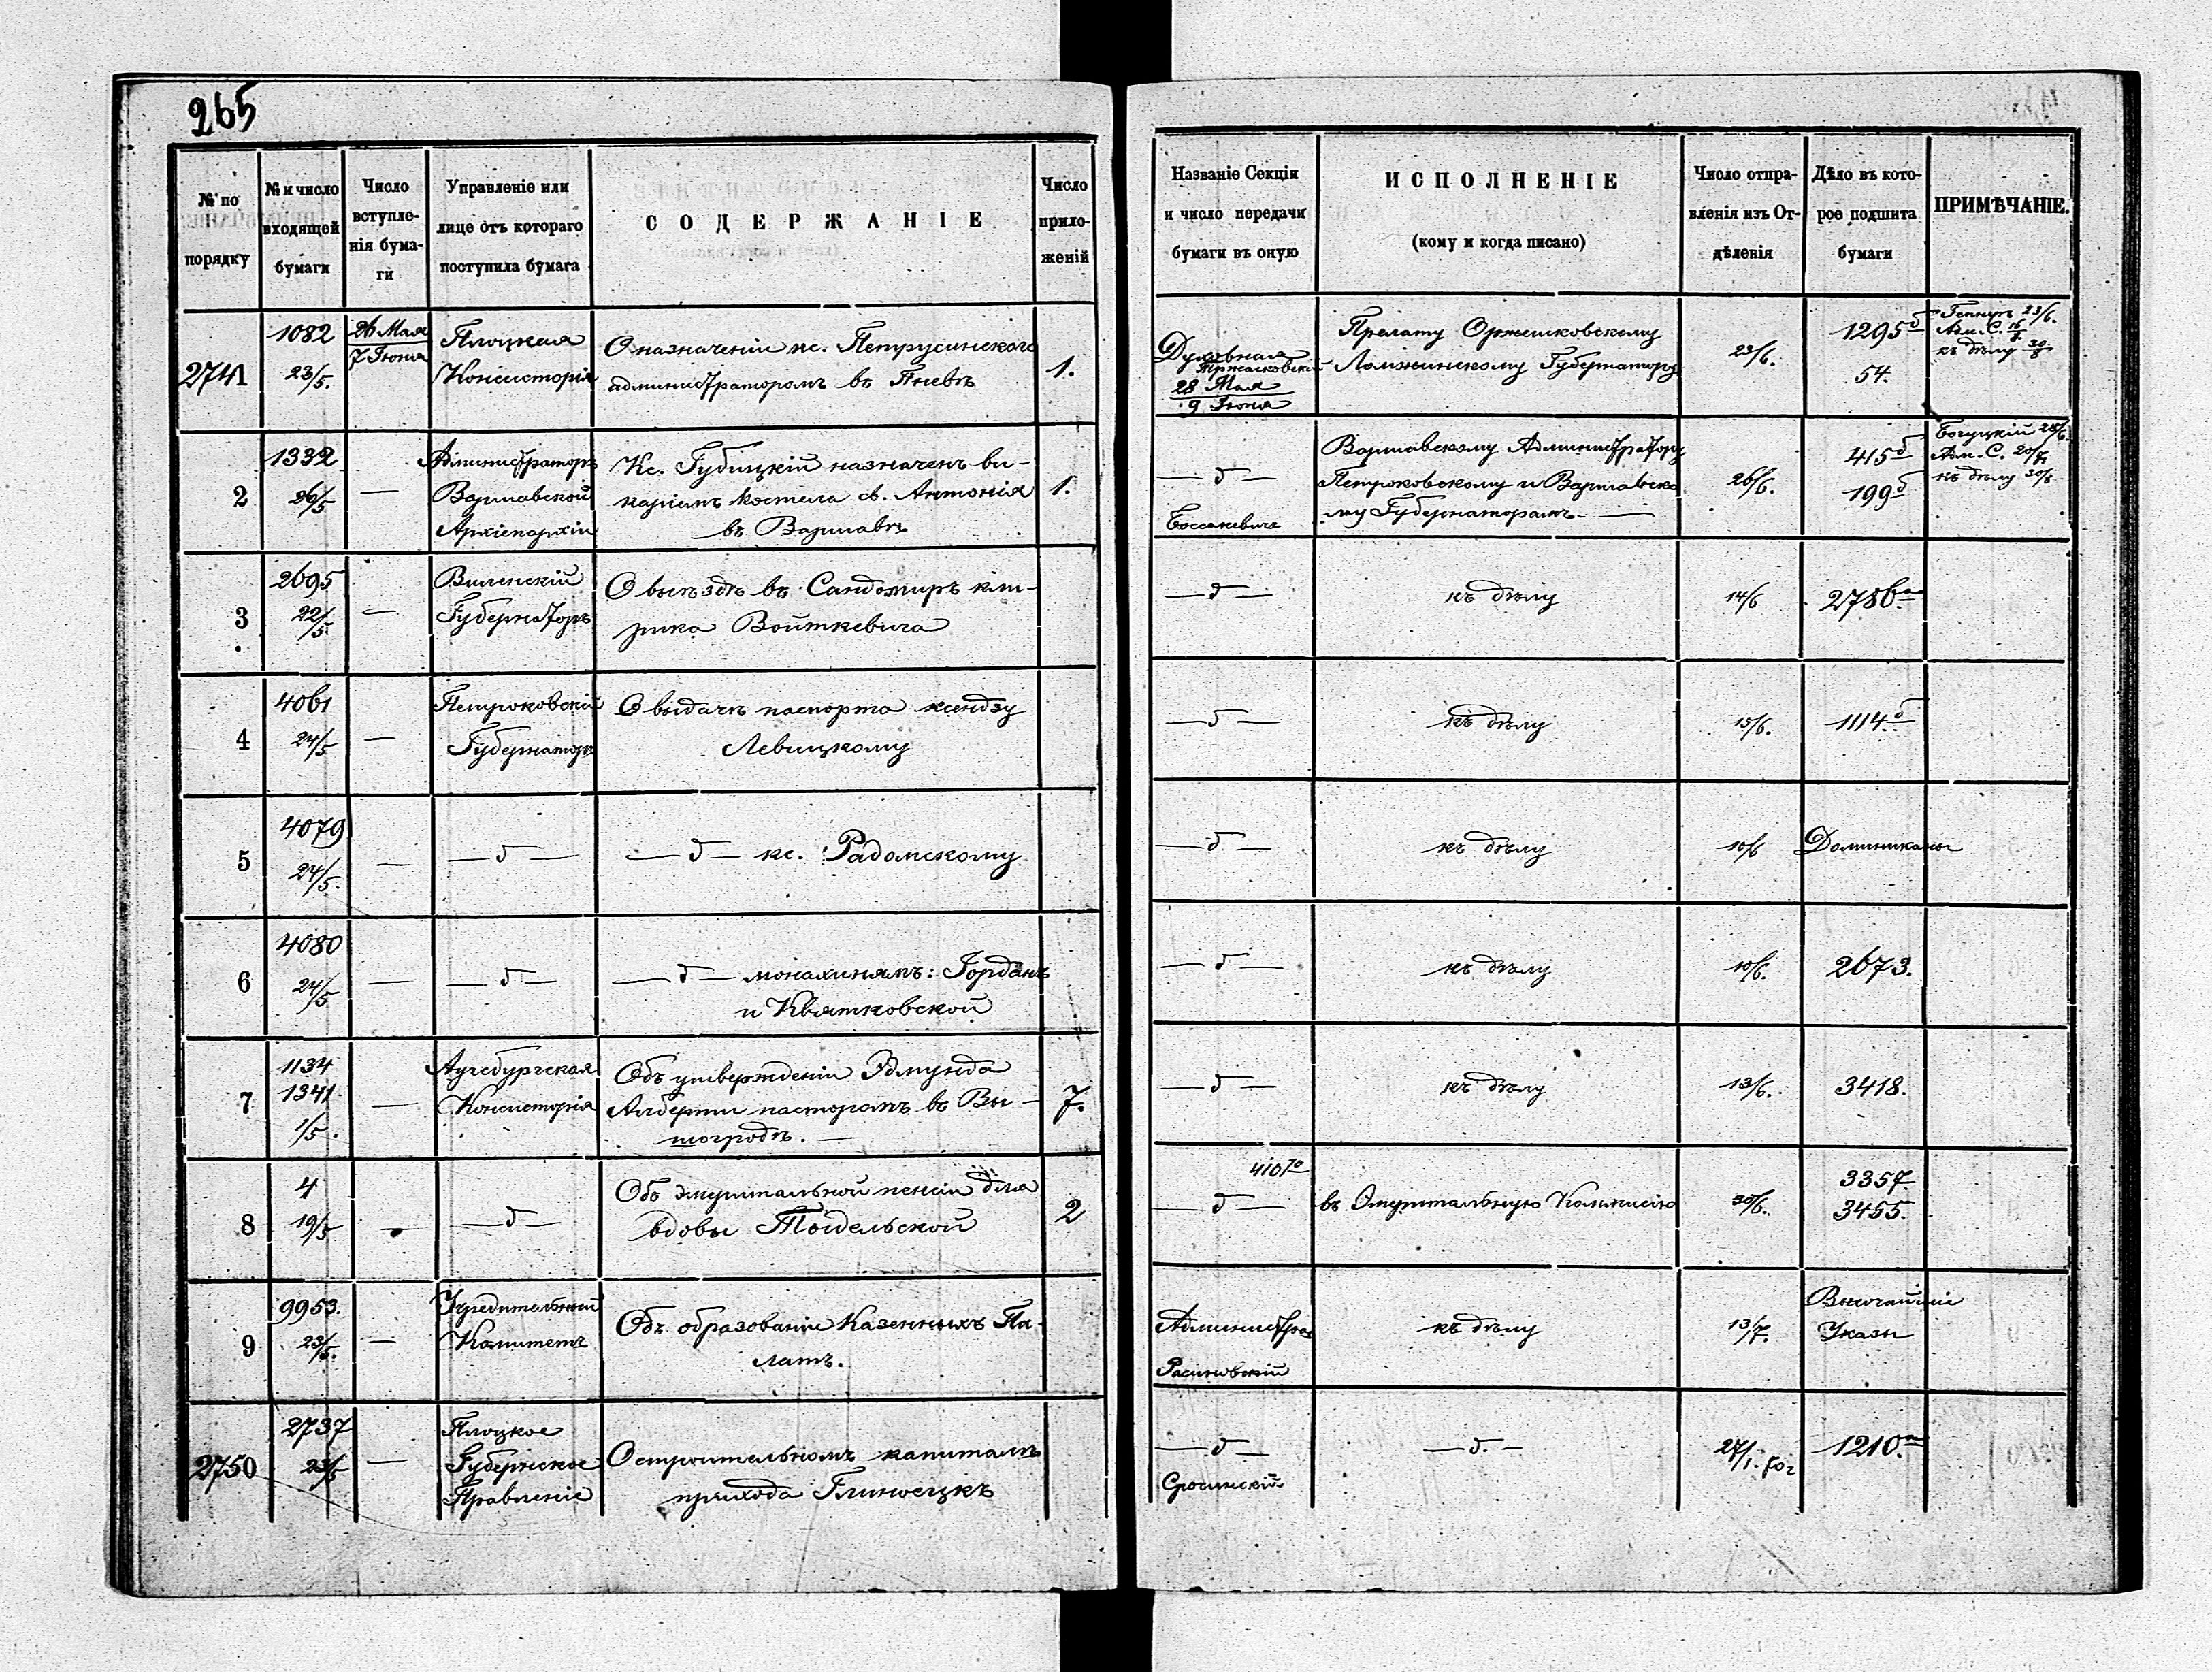 265
№ по порядку
№ и число входящей бумаги
Число вступле-нія бума-ги
Управленіе или лице отъ котораго поступила бумага
СОДЕРЖАНІЕ
Число прило-женій
Названіе Секціи и число передачи бумаги въ оную
ИСПОЛНЕНІЕ
(кому и когда писано)
Число отпра-вленія изъ От-дѣленія
Дѣло въ кото-рое подшита бумаги
ПРИМѢЧАНІЕ.
2741
1082
23/5.
26 Мая
7 Іюня
Плоцкая
Консисторія
О назначеніи кс. Петрусинскаго
администраторомъ въ Пневѣ
1.
Духовная
28 Мая
9 Іюня
Прелату Оржешковскому
Ломжинскому Губернатору
23/6.
1295 б
54.
23/6.
Адм. С.
къ дѣлу
2
1332
26/5
—
Администраторъ
Варшавской
Архіепархіи
Кс. Губицкій назначенъ ви-
каріемъ костела св. Антонія
въ Варшавѣ
1.
— д —
Варшавскому Администратору
Петроковскому и Варшавско
му Губернаторамъ. —
26/6.
415 б
199 б
Богуцкій 28/6.
Адм. С. 20/7.
къ дѣлу
3
2695
22/5.
—
Виленскій
Губернаторъ
О выѣздѣ въ Сандомиръ кли-
рика Войткевича
— д —
къ дѣлу
14/6
2786 а
4
4061
24/5
—
Петроковскій
Губернаторъ
О выдачѣ паспорта ксендзу
Левицкому
— д —
къ дѣлу
15/6.
1114 б
5
4079
24/5.
—
— д —
— д — кс. Радомскому
— д —
къ дѣлу
10/6
Доминиканы
6
4080
24/5
—
— д —
— д — монахинямъ: Горданъ
и Квятковской
— д —
къ дѣлу
10/6.
2673.
7
1134
1341
1/5.
—
Аугсбургская
Консисторія
Объ утвержденіи Эдмунда
Алберти пасторомъ въ Вы-
шогродѣ. —
7.
— д —
къ дѣлу
13/6.
3418.
8
4
19/5
—
— д —
Объ эмеритальной пенсіи для
вдовы Тыдельской
2
— д —
въ Эмеритальную Коммисію
30/6.
3357.
3455.
9
9953.
23/5.
—
Учредительный
Комитетъ
Объ образованіи Казенныхъ Па-
латъ.
Администра
къ дѣлу
13/7.
Высочайшіе
Указы
2750
2737
23/5
—
Плоцкое
Губернское
Правленіе
О строительномъ капиталѣ
прихода Глиноецкъ
— д —
Сросинскій
— д. —
27/1.
1210. а